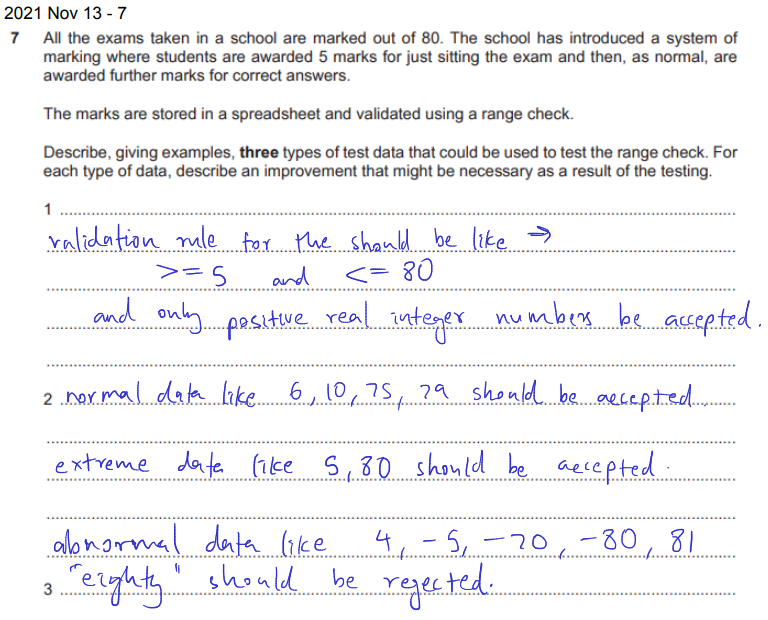 2021 Nov 13 - 7
7 All the exams taken in a school are marked out of 80. The school has introduced a system of
marking where students are awarded 5 marks for just sitting the exam and then, as normal, are
awarded further marks for correct answers.
The marks are stored in a spreadsheet and validated using a range check.
Describe, giving examples, three types of test data that could be used to test the range check. For
each type of data, describe an improvement that might be necessary as a result of the testing.
1
validation rule for the should be like →
>= 5 and <= 80
and only positive real integer numbers be accepted.
2 normal data like 6, 10, 75, 79 should be accepted
extreme data like 5, 80 should be accepted.
abnormal data like 4, -5, -70, -80, 81
3 "eighty" should be rejected.